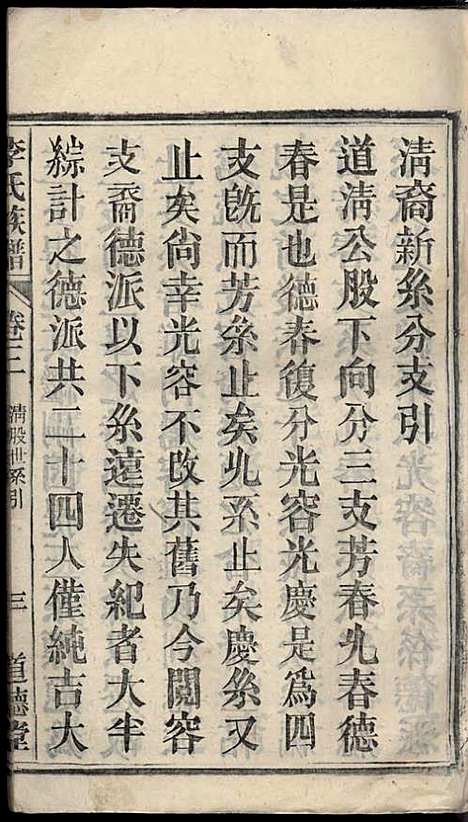 清裔新糸分支引
道清公股下向分三支芳春允春德
春是也德春復分光容光慶是爲四
支旣而芳糸止矣允系止矣慶糸又
止矣尚幸光容不改其舊乃今閱容
支裔德派以下糸遠遷失紀者大半
綜計之德派共二十四人僅純吉大
李氏族譜
卷三
清股世系引
三
道德堂